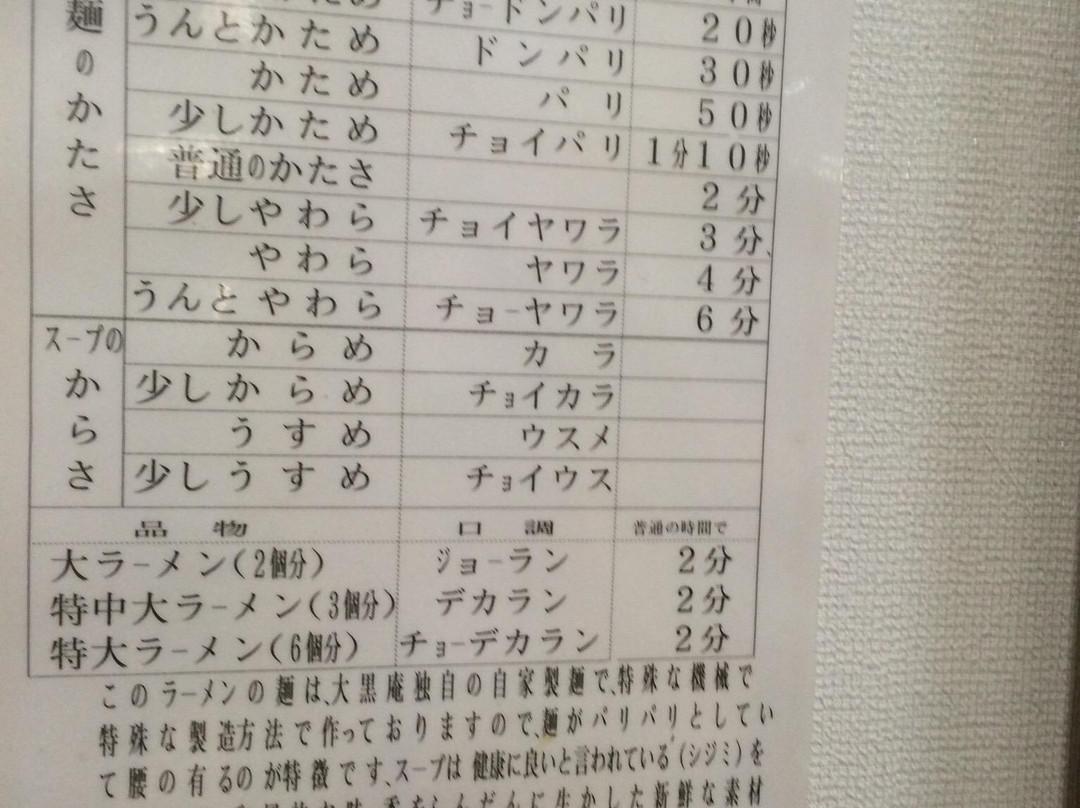 麺のかたさ
チョードンパリ
うんとかため ドンパリ 20秒
かため パリ 30秒
少しかため チョイパリ 50秒
普通のかたさ 1分10秒
少しやわら チョイヤワラ 2分
やわら ヤワラ 3分
うんとやわら チョーヤワラ 4分
6分
スープのからさ
からめ カラ
少しからめ チョイカラ
うすめ ウスメ
少しうすめ チョイウス
品物 口調 普通の時間で
大ラーメン(2個分) ジョーラン 2分
特中大ラーメン(3個分) デカラン 2分
特大ラーメン(6個分) チョーデカラン 2分
このラーメンの麺は、大黒庵独自の自家製麺で、特殊な機械で
特殊な製造方法で作っておりますので、麺がパリパリとしてい
て腰の有るのが特徴です、スープは健康に良いと言われている(シジミ)を
に生かした新鮮な素材